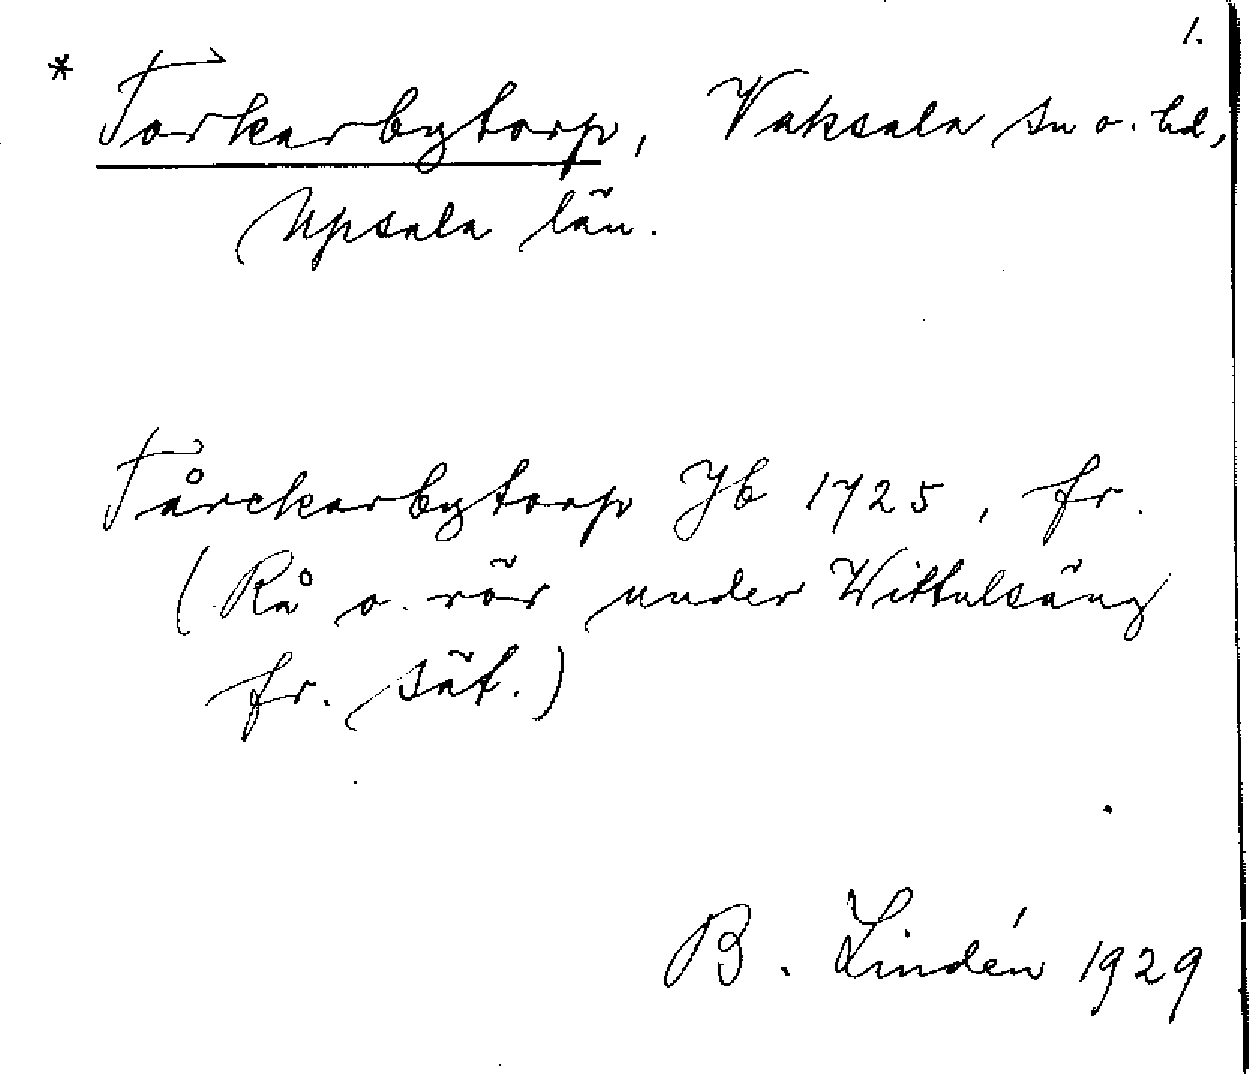 1.
* Torkarbytorp, Vaksala sn o. hd,
Upsala län.
Tårckarbytorp Jb 1725, fr.
(Rå o. rör under Wittulsäng
fr. sät.)
B. Lindén 1929